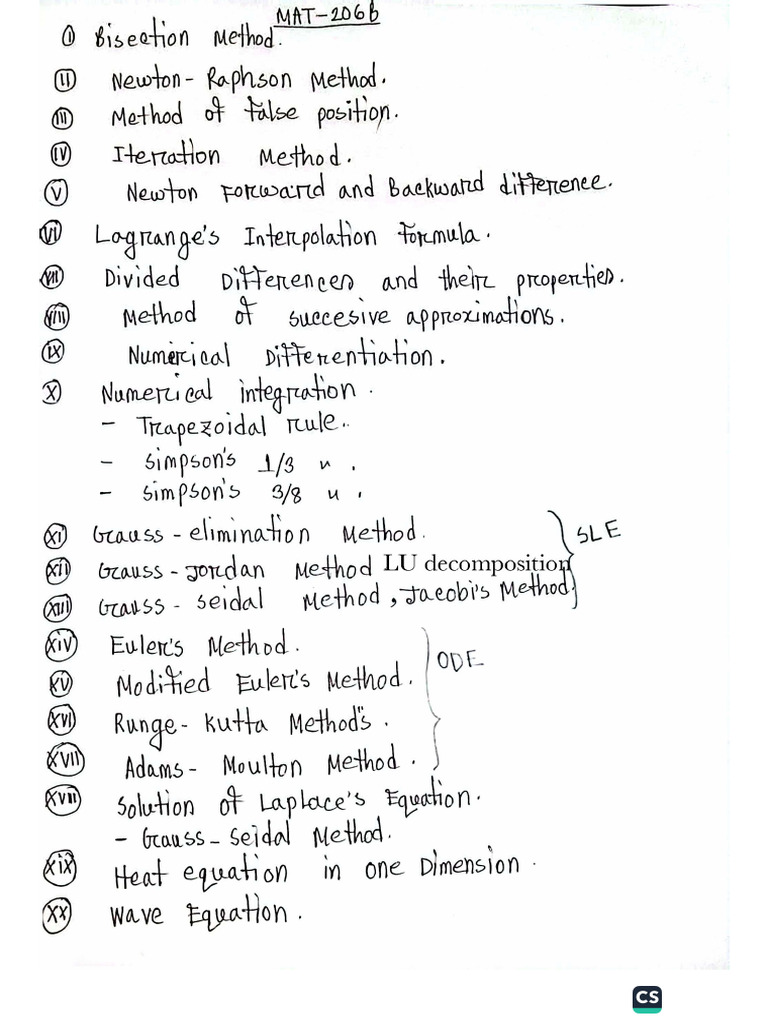 MAT-206b
I Bisection Method.
II Newton-Raphson Method.
III Method of false position.
IV Iteration Method.
V Newton Forward and Backward difference.
VI Lagrange's Interpolation Formula.
VII Divided Differences and their properties.
VIII Method of succesive approximations.
IX Numerical Differentiation.
X Numerical integration.
- Trapezoidal rule.
- Simpson's 1/3 " .
- Simpson's 3/8 " .
XI Gauss-elimination Method.
XII Gauss-Jordan Method LU decomposition
XIII Gauss-Seidal Method, Jacobi's Method
SLE
XIV Euler's Method.
XV Modified Euler's Method.
XVI Runge-Kutta Method's.
XVII Adams-Moulton Method.
ODE
XVII Solution of Laplace's Equation.
- Gauss-Seidal Method.
XIX Heat equation in one Dimension.
XX Wave Equation.
CS